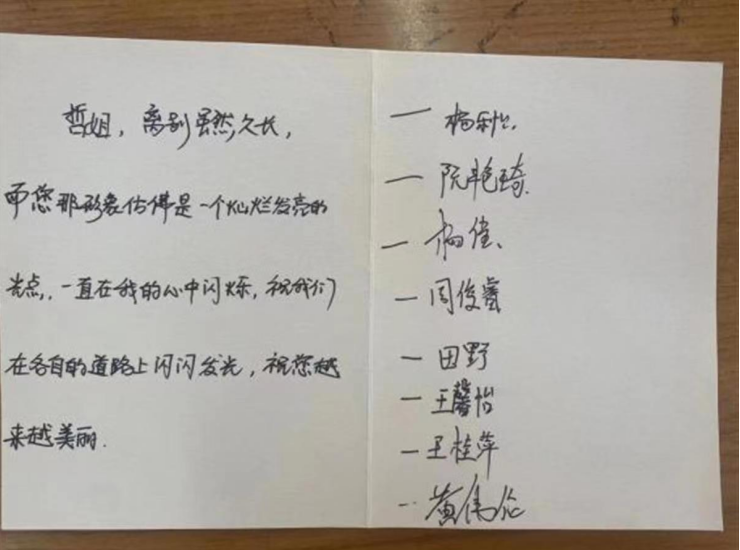 哲姐，离别虽然久长，
而您那形象仿佛是一个灿烂发亮的
光点，一直在我的心中闪烁，祝我们
在各自的道路上闪闪发光，祝您越
来越美丽.
— 杨利
— 阮艳琦.
— 杨佳、
— 周俊睿
— 田野
— 王馨怡
— 王桂萍
— 黄伟伦